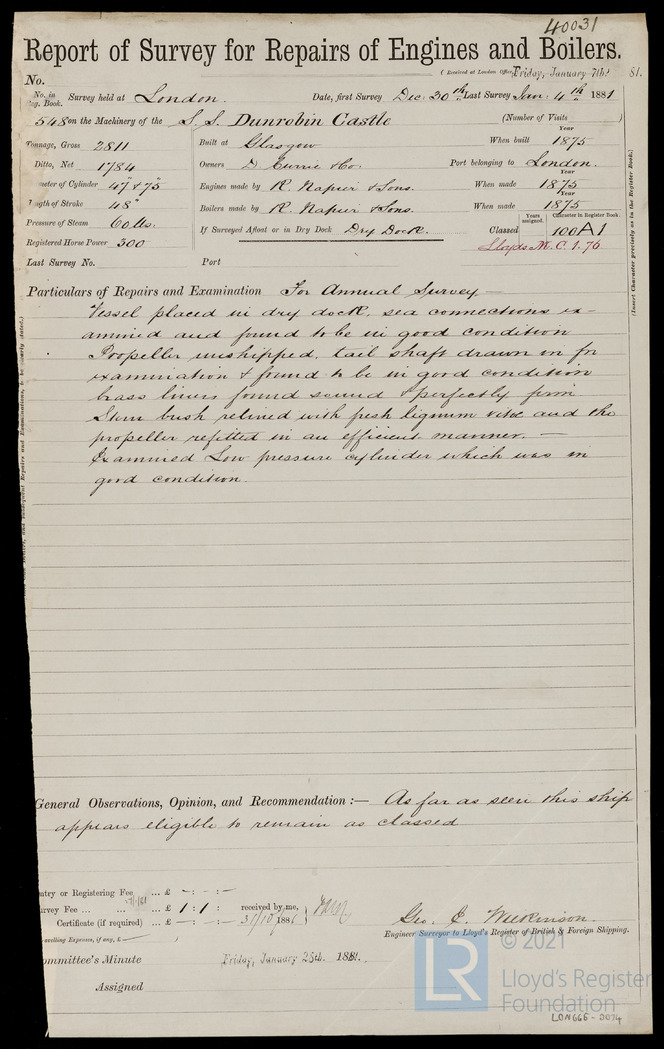 40031
Report of Survey for Repairs of Engines and Boilers.
(Received at London Office Friday, January 7th 81.
No.
No. in Reg. Book. Survey held at London. Date, first Survey Dec: 30th Last Survey Jan: 4th 1881
548 on the Machinery of the S.S. Dunrobin Castle (Number of Visits )
Tonnage, Gross 2811 Built at Glasgow When built Year 1875
Ditto, Net 1784 Owners D Currie & Co. Port belonging to London.
meter of Cylinder 47" & 75" Engines made by R. Napier & Sons. When made Year 1875
ngth of Stroke 48" Boilers made by R. Napier & Sons. When made Year 1875
Pressure of Steam 60 lbs. If Surveyed Afloat or in Dry Dock Dry Dock. Classed Years assigned. Character in Register Book. 100A1
Registered Horse Power 300 Lloyds M.C. 1.76
Last Survey No. Port
(Insert Character precisely as in the Register Book.)
Particulars of Repairs and Examination For Annual Survey
Vessel placed in dry dock, sea connections ex-
amined and found to be in good condition
Propeller unshipped, tail shaft drawn in for
examination & found to be in good condition
brass liners found sound & perfectly firm
Stern bush relined with fresh lignum vitæ and the
propeller refitted in an efficient manner. —
Examined Low pressure cylinder which was in
good condition.
General Observations, Opinion, and Recommendation :— As far as seen this ship
appears eligible to remain as classed
ntry or Registering Fee ... £ - : - : -
urvey Fee ... ... £ 1 : 1 : received by me,
Certificate (if required) ... £ - : - : - 1881
avelling Expenses, if any, £ )
Geo. J. Wilkinson.
Engineer Surveyor to Lloyd's Register of British & Foreign Shipping.
ommittee's Minute Friday, January 25th 1881.
Assigned
© 2021
LR
Lloyd's Register
Foundation
LON665-0074